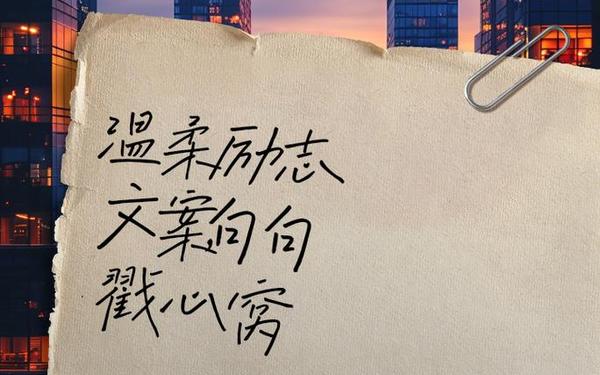 温柔励志
文案句句
戳心窝